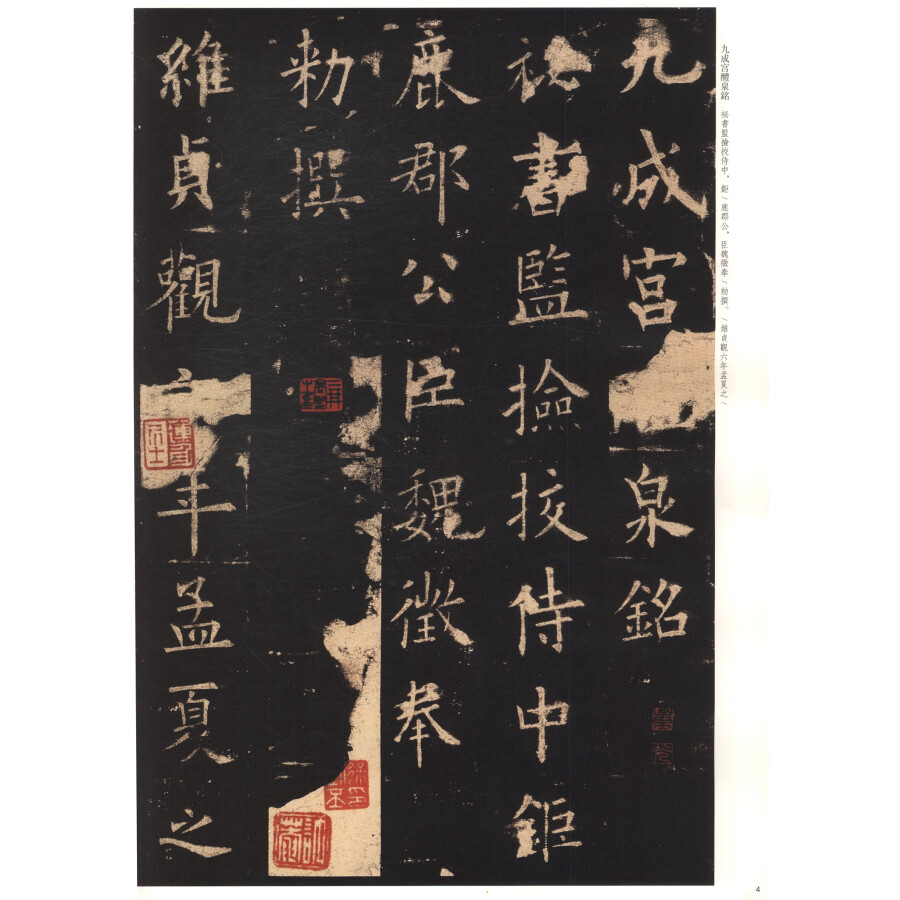 九成宮醴泉銘 祕書監撿挍侍中，鉅\鹿郡公，臣魏徵奉\勅撰。\維貞觀六年孟夏之\
九成宮泉銘
祕書監撿挍侍中鉅
鹿郡公臣魏徵奉
勅撰
維貞觀年孟夏之
4